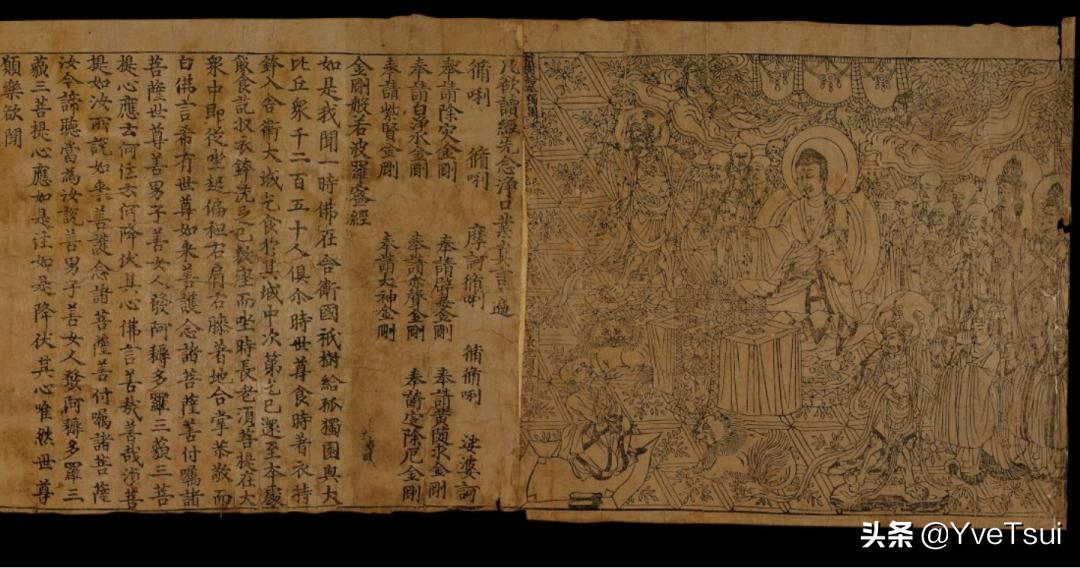 凡欲讀經先念淨口業真言一遍
脩唎 脩唎 摩訶脩唎 脩脩唎 娑婆訶
奉請除灾金剛 奉請辟毒金剛 奉請黃隨求金剛
奉請白淨水金剛 奉請赤聲金剛 奉請定除厄金剛
奉請紫賢金剛 奉請大神金剛
金剛般若波羅蜜經
如是我聞一時佛在舍衛國祇樹給孤獨園與大
比丘衆千二百五十人俱尒時世尊食時著衣持
鉢入舍衛大城乞食於其城中次第乞已還至本處
飯食訖收衣鉢洗足已敷座而坐時長老須菩提在大
衆中即從座起偏袒右肩右膝著地合掌恭敬而
白佛言希有世尊如來善護念諸菩薩善付囑諸
菩薩世尊善男子善女人發阿耨多羅三藐三菩
提心應云何住云何降伏其心佛言善哉善哉須菩
提如汝所說如來善護念諸菩薩善付囑諸菩薩
汝今諦聽當為汝說善男子善女人發阿耨多羅三
藐三菩提心應如是住如是降伏其心唯然世尊
願樂欲聞
头条 @YveTsui